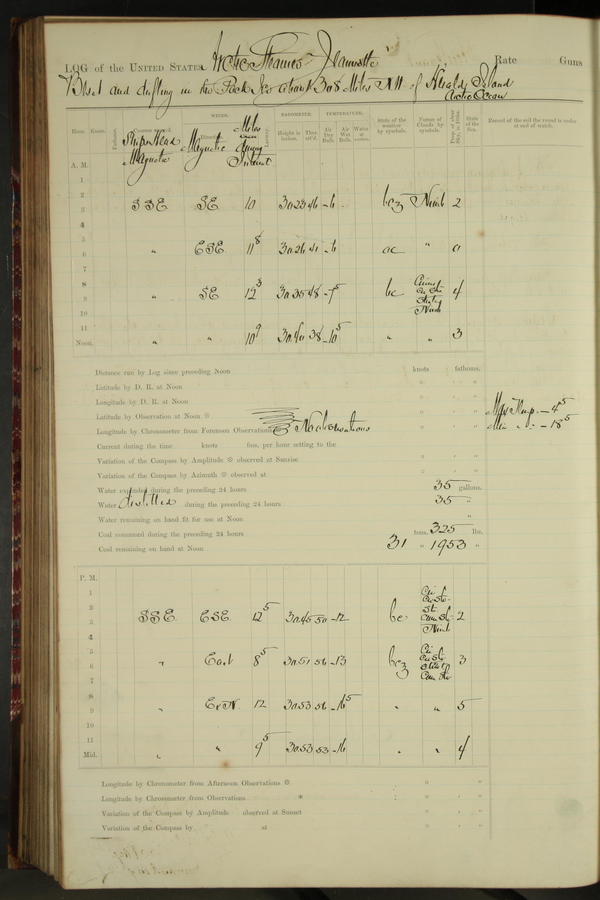 LOG of the UNITED STATES Arctic Steamer Jeannette Rate Guns
Beset and drifting in the Pack Ice about 308 Miles NW of Herald Island
Arctic Ocean
WINDS. BAROMETER. TEMPERATURE.
Hour. Knots. Fathoms. Courses steered. Direction. Leeway. Height in inches. Ther. att'd. Air Dry Bulb. Air Wet Bulb. Water at surface. State of the weather by symbols. Forms of Clouds by symbols. Prop. of clear Sky, in 10ths. State of the Sea. Record of the sail the vessel is under at end of watch.
Ship's Head Magnetic Magnetic Miles
A. M.
1
2
3 SSE SE 10 30.23 46 -6 bcz Nimb 2
4
5
6 " ESE 11.8 30.26 41 -6 oc " 0
7
8 " SE 12.3 30.35 48 -7.5 bc 4
9
10 Nimb
11
Noon. " " 10.9 30.40 38 -10.5 " " 3
Distance run by Log since preceding Noon knots fathoms.
Latitude by D. R. at Noon
Longitude by D. R. at Noon Max Temp. - 4.5
Latitude by Observation at Noon Min " " - 18.5
Longitude by Chronometer from Forenoon Observations No observations
Current during the time knots fms. per hour setting to the
Variation of the Compass by Amplitude observed at Sunrise
Variation of the Compass by Azimuth observed at
Water expended during the preceding 24 hours 35 gallons.
Water distilled during the preceding 24 hours 35 "
Water remaining on hand fit for use at Noon "
Coal consumed during the preceding 24 hours tons. 325 lbs.
Coal remaining on hand at Noon 31 " 1953 "
P. M.
1
2
3 SSE ESE 12.5 30.45 50 -12 bc 2
4
5
6 " East 8.5 30.51 56 -13 bcz 3
7
8 " ExN. 12 30.53 56 -16.5 " " 5
9
10
11
Mid. " " 9.5 30.53 53 -16 " " 4
Longitude by Chronometer from Afternoon Observations
Longitude by Chronometer from Observations
Variation of the Compass by Amplitude observed at Sunset
Variation of the Compass by at